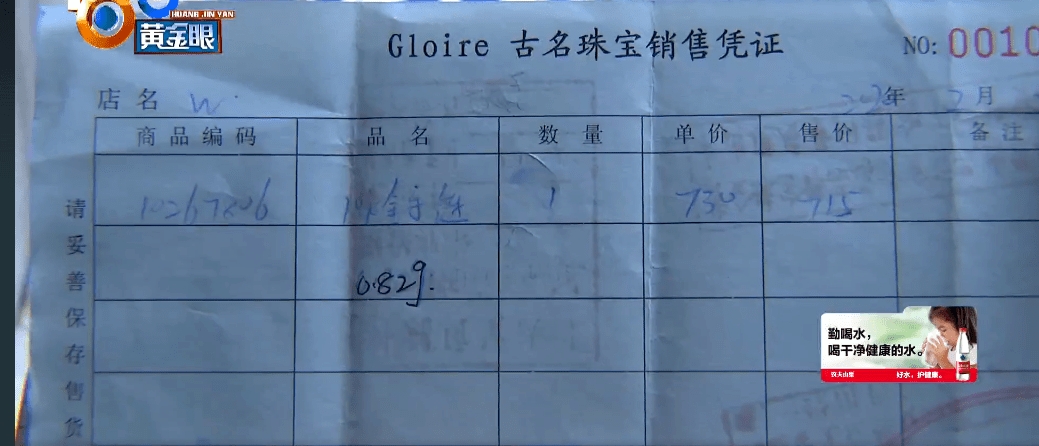 HUANG JIN YAN
黄金眼
Gloire 古名珠宝销售凭证 NO: 0010
店名 W 年 2月
商品编码 品名 数量 单价 售价 备注
10267806 1 730 715
0.82g.
请妥善保存售货
勤喝水，
喝干净健康的水。
农夫山泉 好水，护健康。